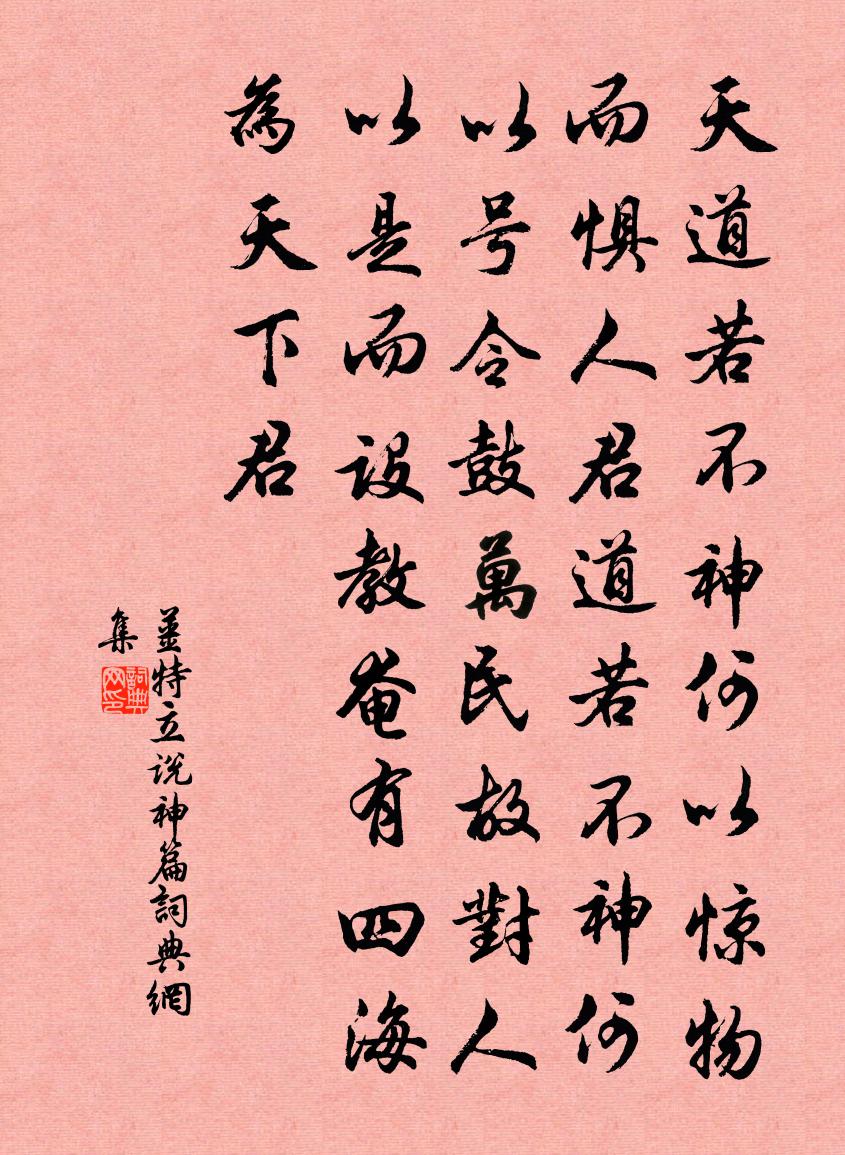 天道若不神何以惊物
而惧人君道若不神何
以号令鼓萬民故對人
以是而设教奄有四海
為天下君
薑特立说神篇詞典網
集
詞典
网印